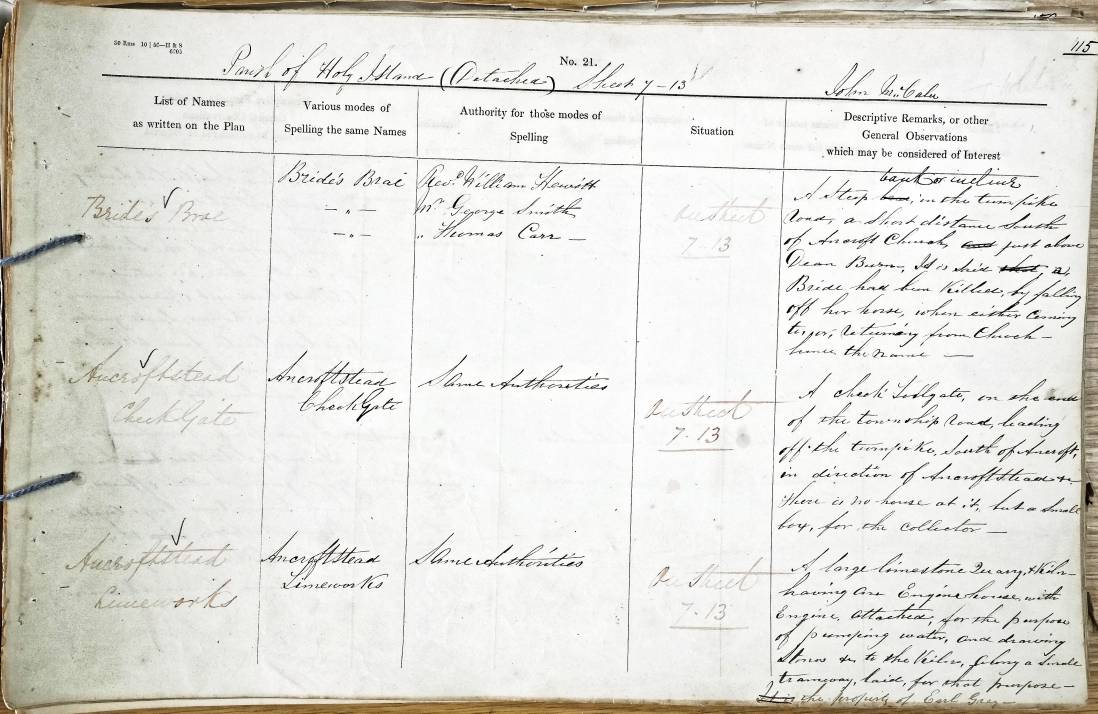 115
30 Rms 10 | 56—H & S
6705
No. 21.
Parish of Holy Island (Detached) Sheet 7-13
John McCabe
List of Names
as written on the Plan
Various modes of
Spelling the same Names
Authority for those modes of
Spelling
Situation
Descriptive Remarks, or other
General Observations
which may be considered of Interest
Bride's Brae
Bride's Brae
— „ —
— „ —
Revd. William Hewitt
Mr. George Smith
„ Thomas Carr —
On Sheet
7.13
bank or incline
A steep on the turnpike
road, a short distance South
of Ancroft Church, and just above
Dean Burn, It is said that a
Bride had been killed, by falling
off her horse, when either coming
to, or, returning from Church —
hence the name —
Ancroftstead
Check Gate
Ancroftstead
Check Gate
Same Authorities
On Sheet
7.13
A check Tollgate, on the end
of the township road, leading
off the turnpike, South of Ancroft,
in direction of Ancroftstead &c
There is no house at it, but a small
box, for the collector —
Ancroftstead
Limeworks
Ancroftstead
Limeworks
Same Authorities
On Sheet
7.13
A large limestone Quarry, & Kiln
having an Engine house, with
Engine, attached, for the purpose
of pumping water, and drawing
Stones &c to the Kiln, along a small
tramway, laid, for that purpose —
It is the property of Earl Grey —